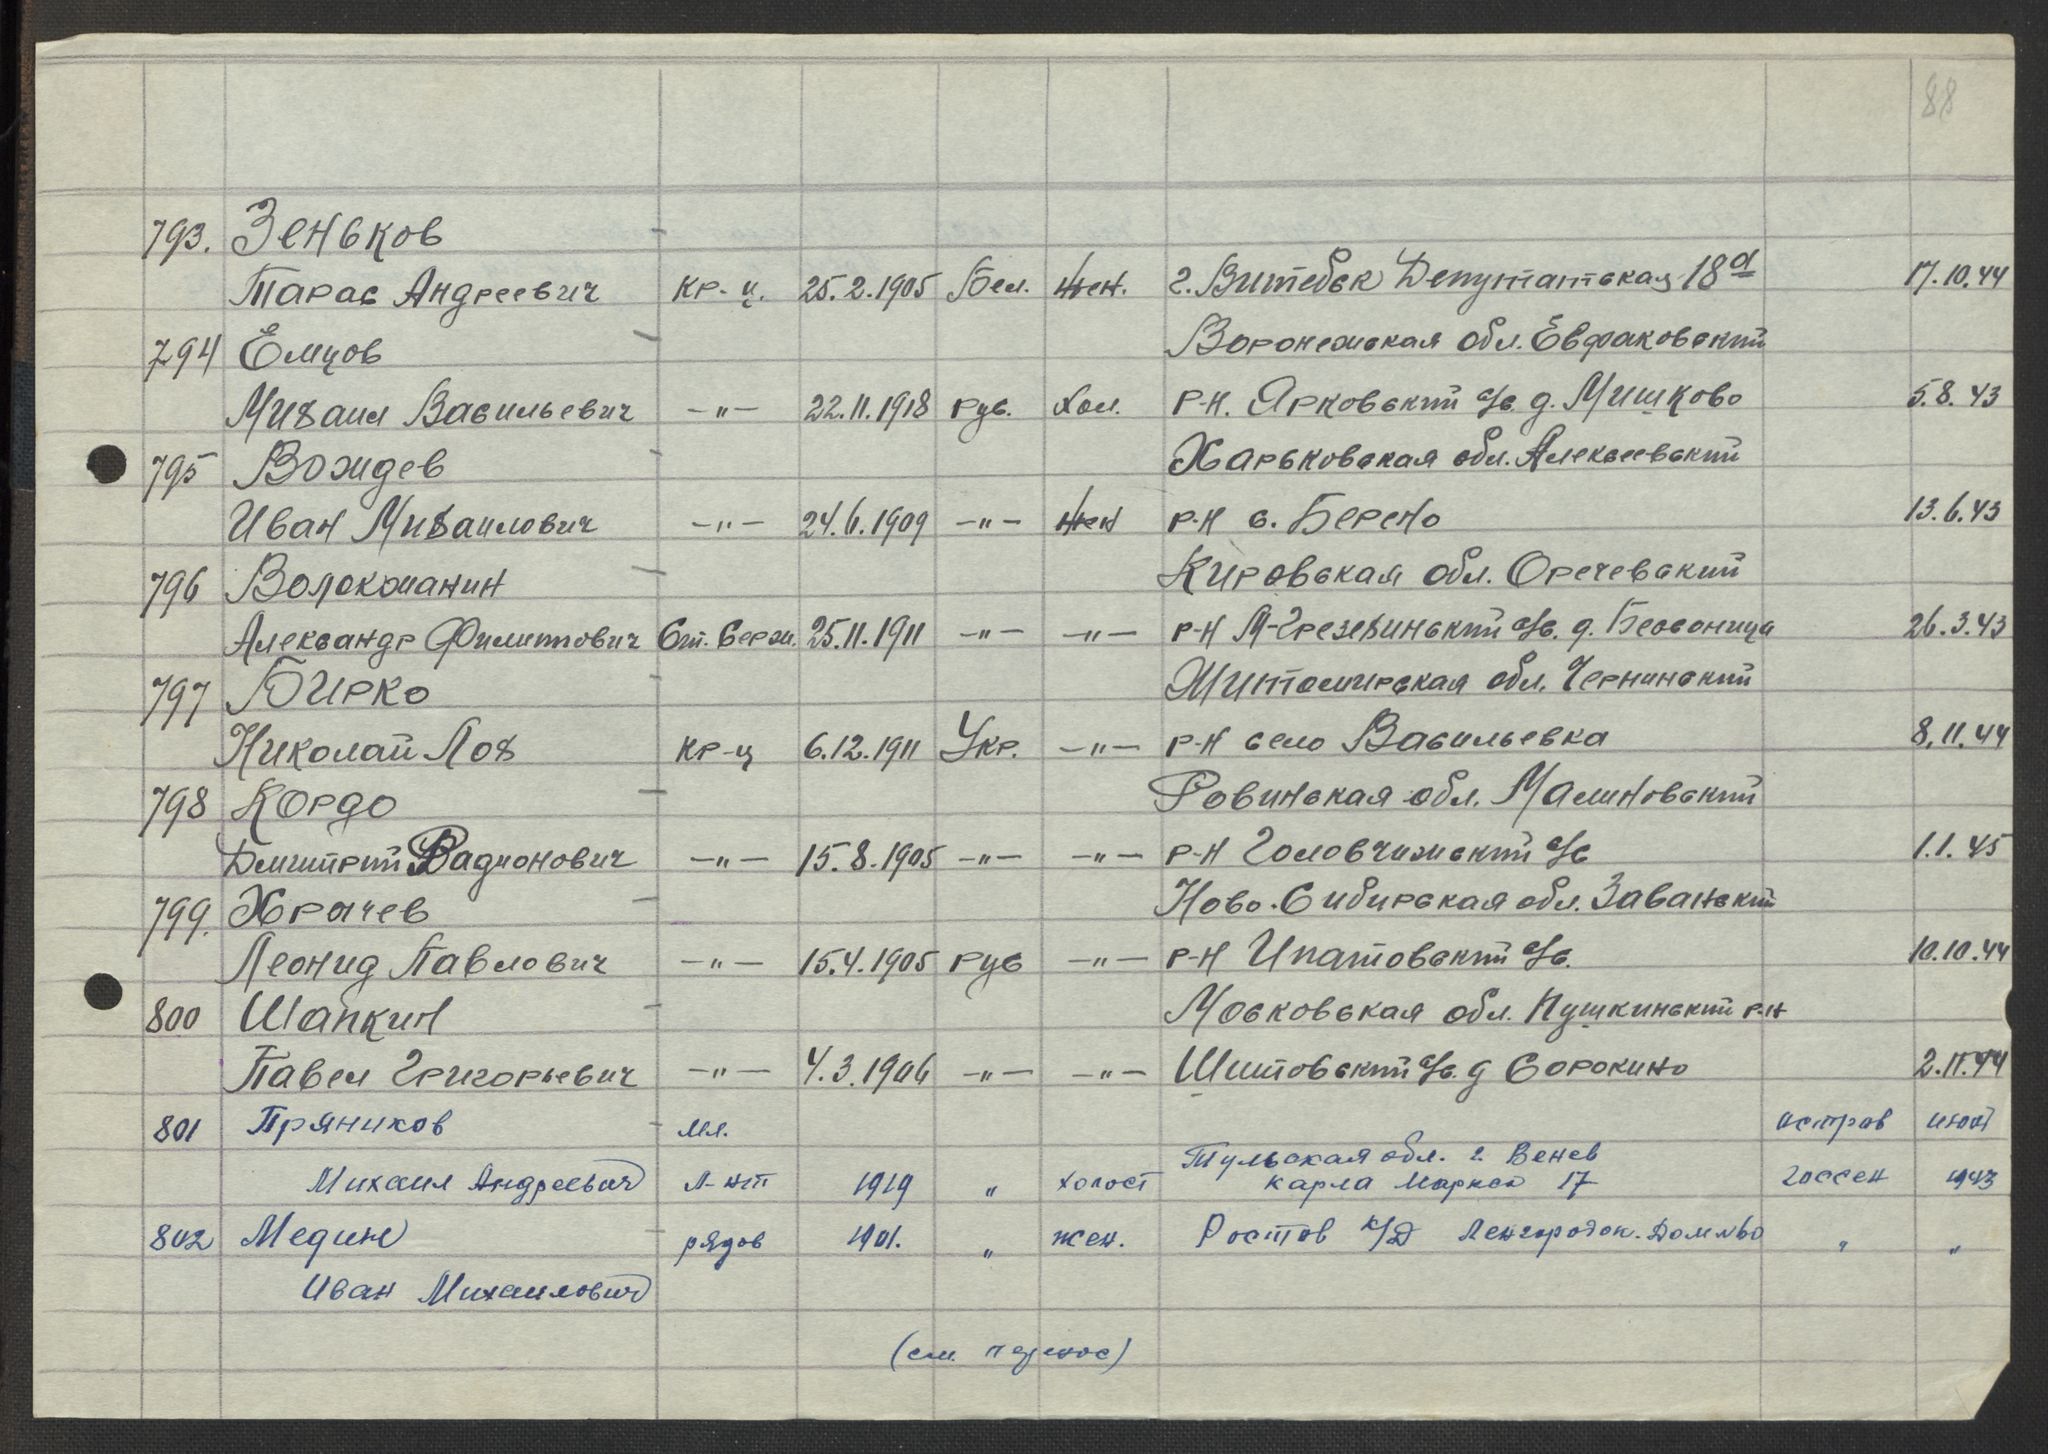 88
793. Зеньков
Тарас Андреевич кр-ц. 25.2.1905 Бел. жен. г. Витебск Депутатская 18а 17.10.44
794 Емцов Воронежская обл. Евдаковский
Михаил Васильевич —"— 22.11.1918 рус. хол. р-н. Ярковский с/с. д. Мишково 5.8.43
795 Вождев Харьковская обл. Алексеевский
Иван Михаилович —"— 24.6.1909 —"— жен р-н с. Берено 13.6.43
796 Волокжанин Кировская обл. Оречевский
Александр Филиппович Ст. Серж. 25.11.1911 —"— —"— р-н М-Грезехинский с/с. д. 26.3.43
797 Бирко Житомирская обл. Чернинский
Николай Лох кр-ц 6.12.1911 Укр. —"— р-н село Васильевка 8.11.44
798 Кордо Ровинская обл. Малиновский
Дмитрий Радионович —"— 15.8.1905 —"— —"— р-н Головчижский с/с 1.1.45
799. Храпчев Ново-Сибирская обл. Заванский
Леонид Павлович —"— 15.4.1905 рус —"— р-н Ипатовский с/с. 10.10.44
800 Шапкин Московская обл. Пушкинский р-н
Павел Григорьевич —"— 4.3.1906 —"— —"— Шитовский с/с. д Сорокино 2.11.44
801 Пряников мл. остров июнь
Тульская обл. г. Венев
Михаил Андреевич л-нт 1919 " холост Карла Маркса 17 Госсен 1943
802 Медин рядов 1901. " жен. Ростов н/Д Ленгородок. Дом №60 " "
Иван Михаилович
(см. перенос)